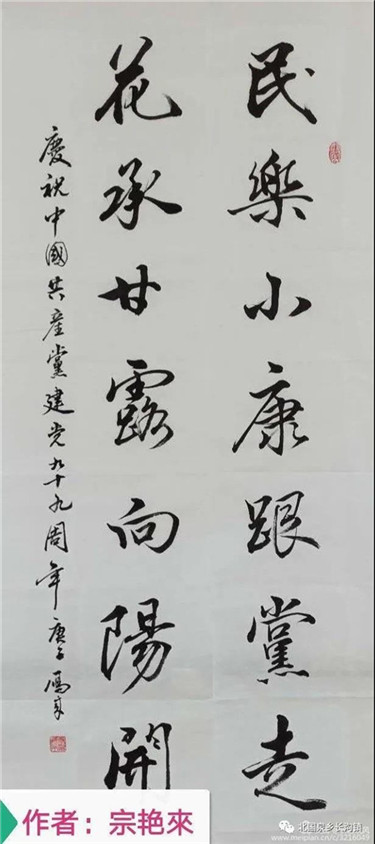 民樂小康跟黨走
花承甘露向陽開
慶祝中國共產黨建党九十九周年庚子
作者：宗艳來